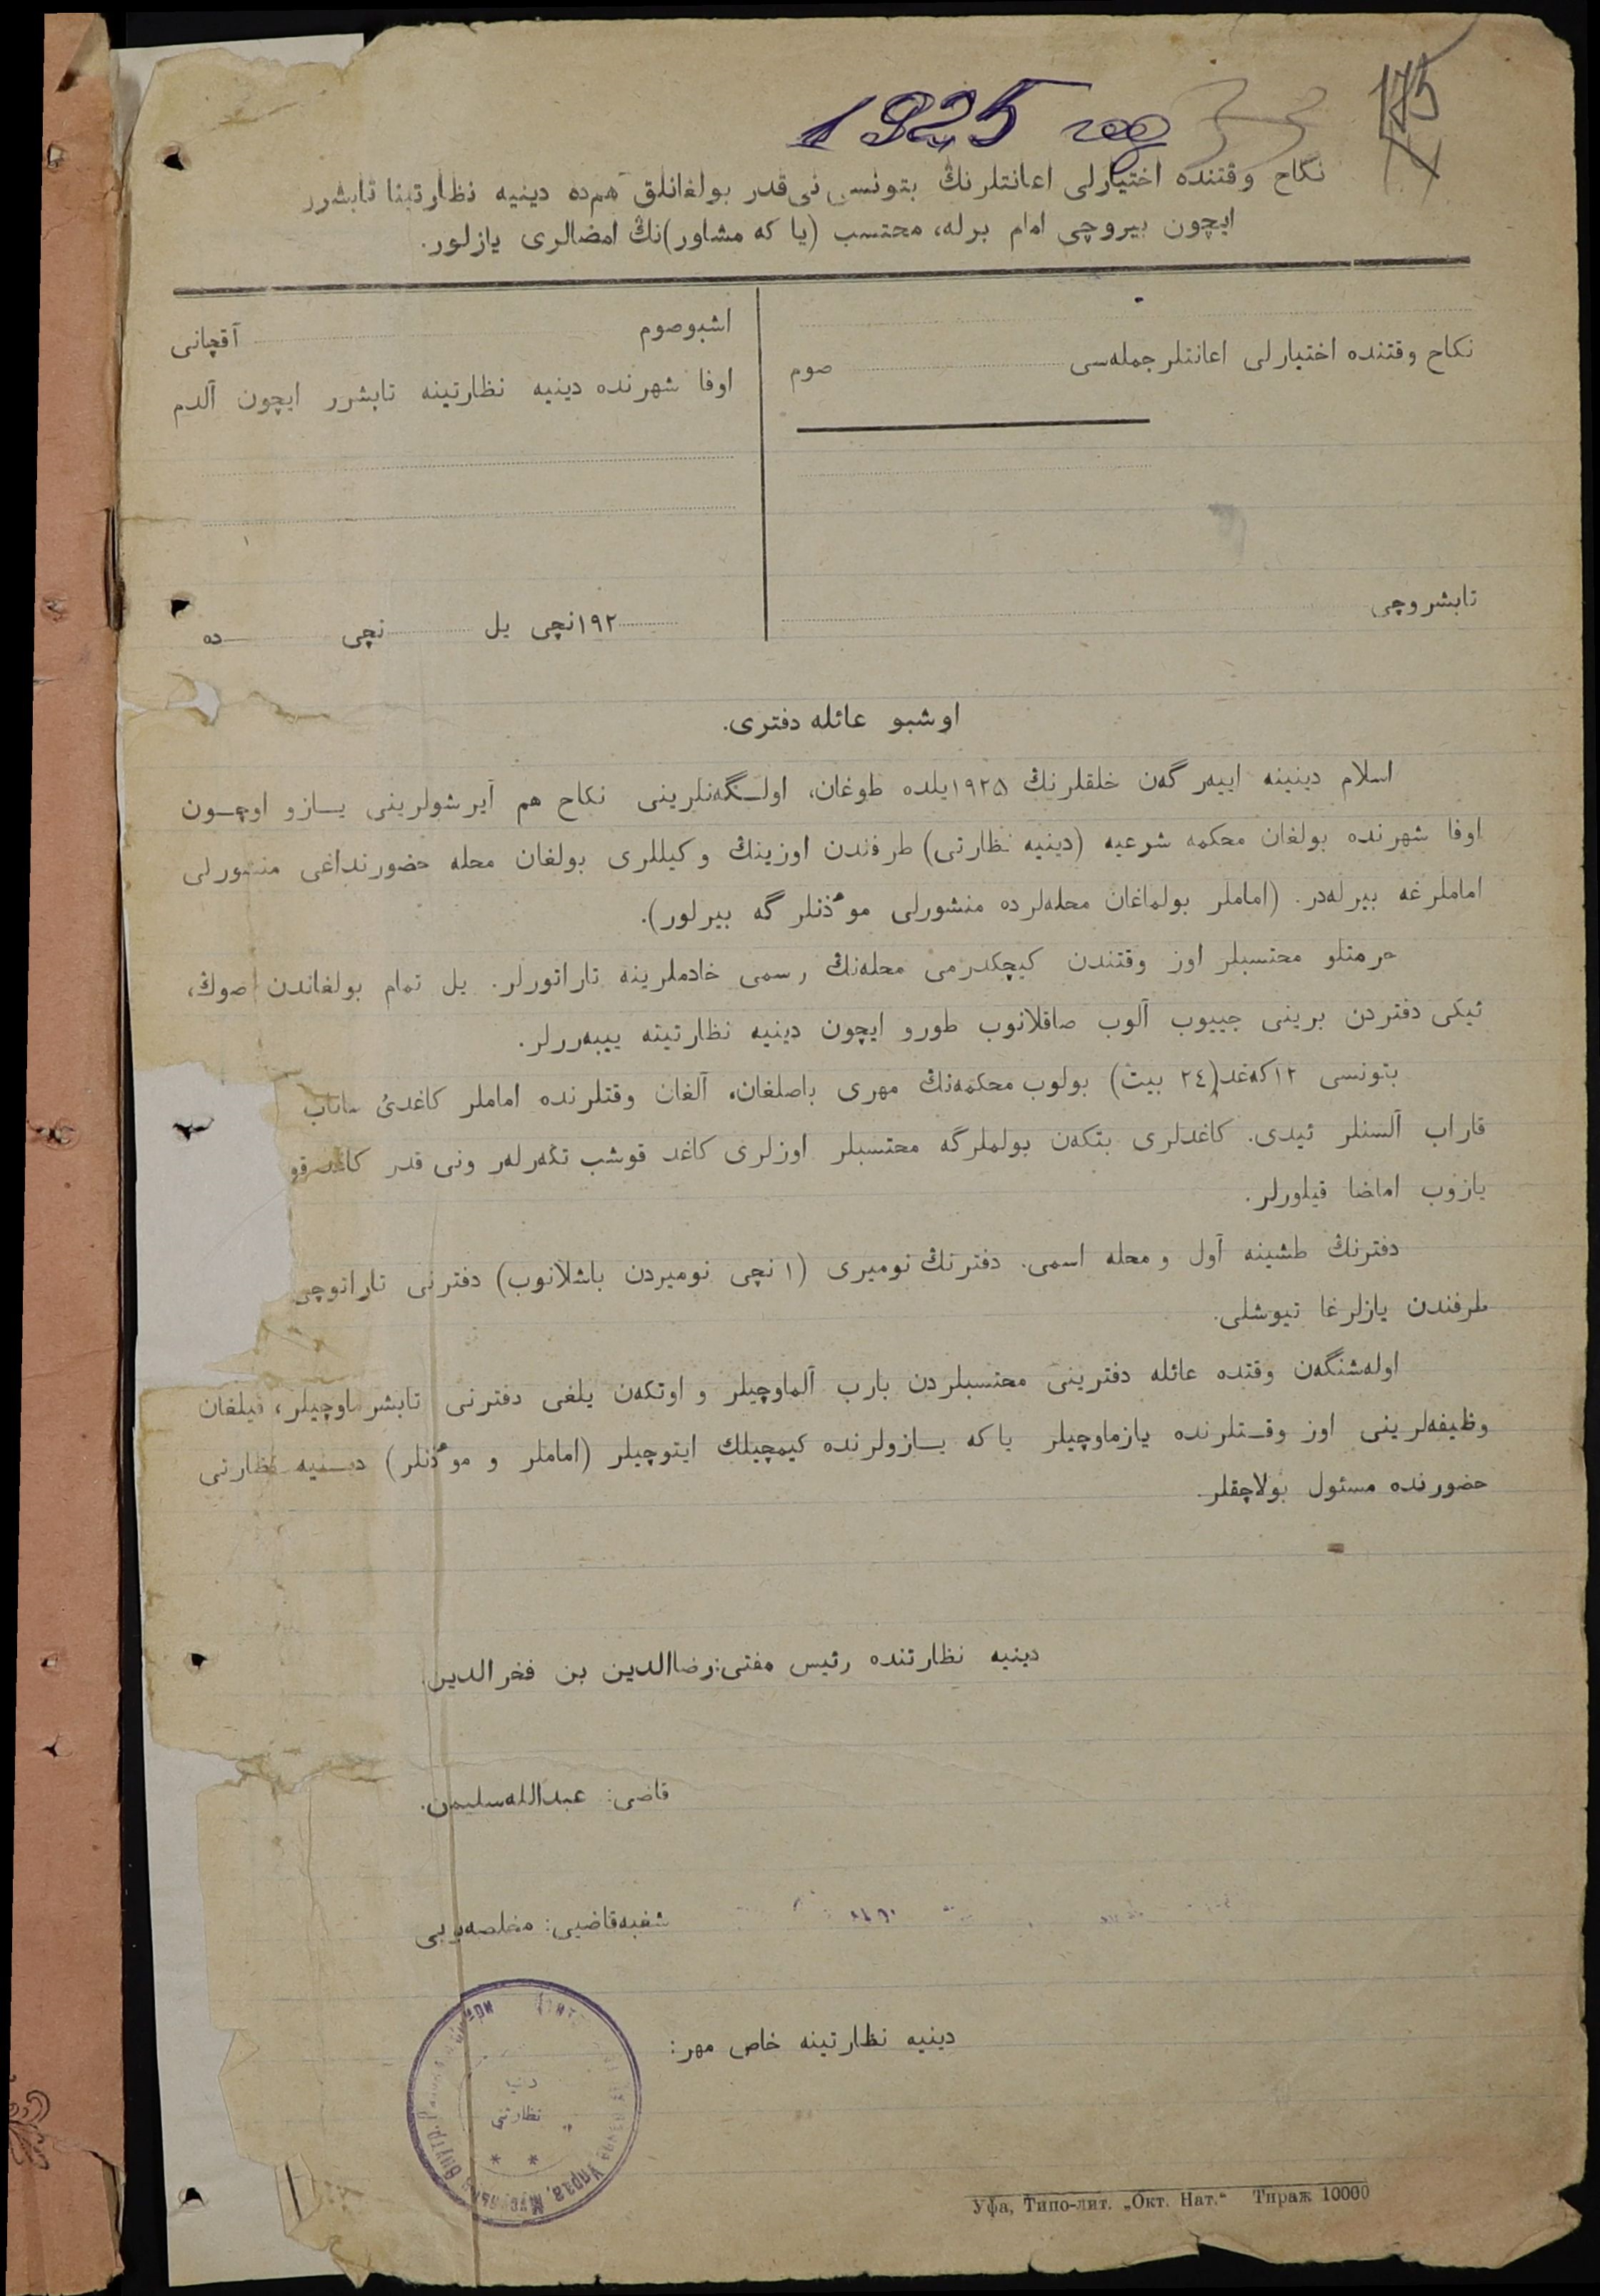 1925 год
175
نكاح وقتنده اختيارلى اعانتلرنڭ بتونسى نى‌قدر بولغانلق هم‌ده دينيه نظارتينا تابشرر
ايچون بيروچى امام برله، محتسب (يا كه مشاور)نڭ امضالرى يازلور.
نكاح وقتنده اختيارلى اعانتلر جمله‌سى صوم
تابشروچى
اشبو صوم آقچانى
اوفا شهرنده دينيه نظارتينه تابشرر ايچون آلدم
١٩٢ نچى يل نچى ده
اوشبو عائله دفترى.
اسلام دينينه اييه‌ر گه‌ن خلقلرنڭ ١٩٢٥ يلده طوغان، اولــگه‌نلرينى نكاح هم آيرشولرينى يــازو اوچــون
اوفا شهرنده بولغان محكمه شرعيه (دينيه نظارتى) طرفندن اوزينڭ وكيللرى بولغان محله حضورنداغى منشورلى
اماملرغه بيرله‌در. (اماملر بولماغان محله‌لرده منشورلى موٴذنلر گه بيرلور).
حرمتلو محتسبلر اوز وقتندن كيچكدرمى محله‌نڭ رسمى خادملرينه تاراتورلر. يل تمام بولغاندن صوڭ،
ئيكى دفتردن برينى جييوب آلوب صاقلانوب طورو ايچون دينيه نظارتينه ييبه‌ررلر.
بتونسى ١٢ كه‌غد (٢٤ بيت) بولوب محكمه‌نڭ مهرى باصلغان. آلغان وقتلرنده اماملر كاغدىٔ ساناب
قاراب آلسنلر ئيدى. كاغدلرى بتكه‌ن بولملرگه محتسبلر اوزلرى كاغد قوشب تگه‌رله‌ر ونى قدر كاغد قو
يازوب امضا قيلورلر.
دفترنڭ طشينه آول و محله اسمى. دفترنڭ نوميرى (١ نچى نوميردن باشلانوب) دفترنى تاراتوچى
طرفندن يازلرغا تيوشلى.
اوله‌شنگه‌ن وقتده عائله دفترينى محتسبلردن بارب آلماوچيلر و اوتكه‌ن يلغى دفترنى تابشرماوچيلر، قيلغان
وظيفه‌لرينى اوز وقــتلرنده يازماوچيلر يا كه يــازولرنده كيمچيلك ايتوچيلر (اماملر و موٴذنلر) ديــنيه نظارتى
حضورنده مسئول بولاچقلر.
دينيه نظارتنده رئيس مفتى: رضاالدين بن فخرالدين.
قاضى: عبدالله سليمن.
شعبه قاضيى: مخلصه بوبى
دينيه نظارتينه خاص مهر:
نظارتى
Внутр.
Уфа, Типо-лит. „Окт. Нат.“ Тираж 10000